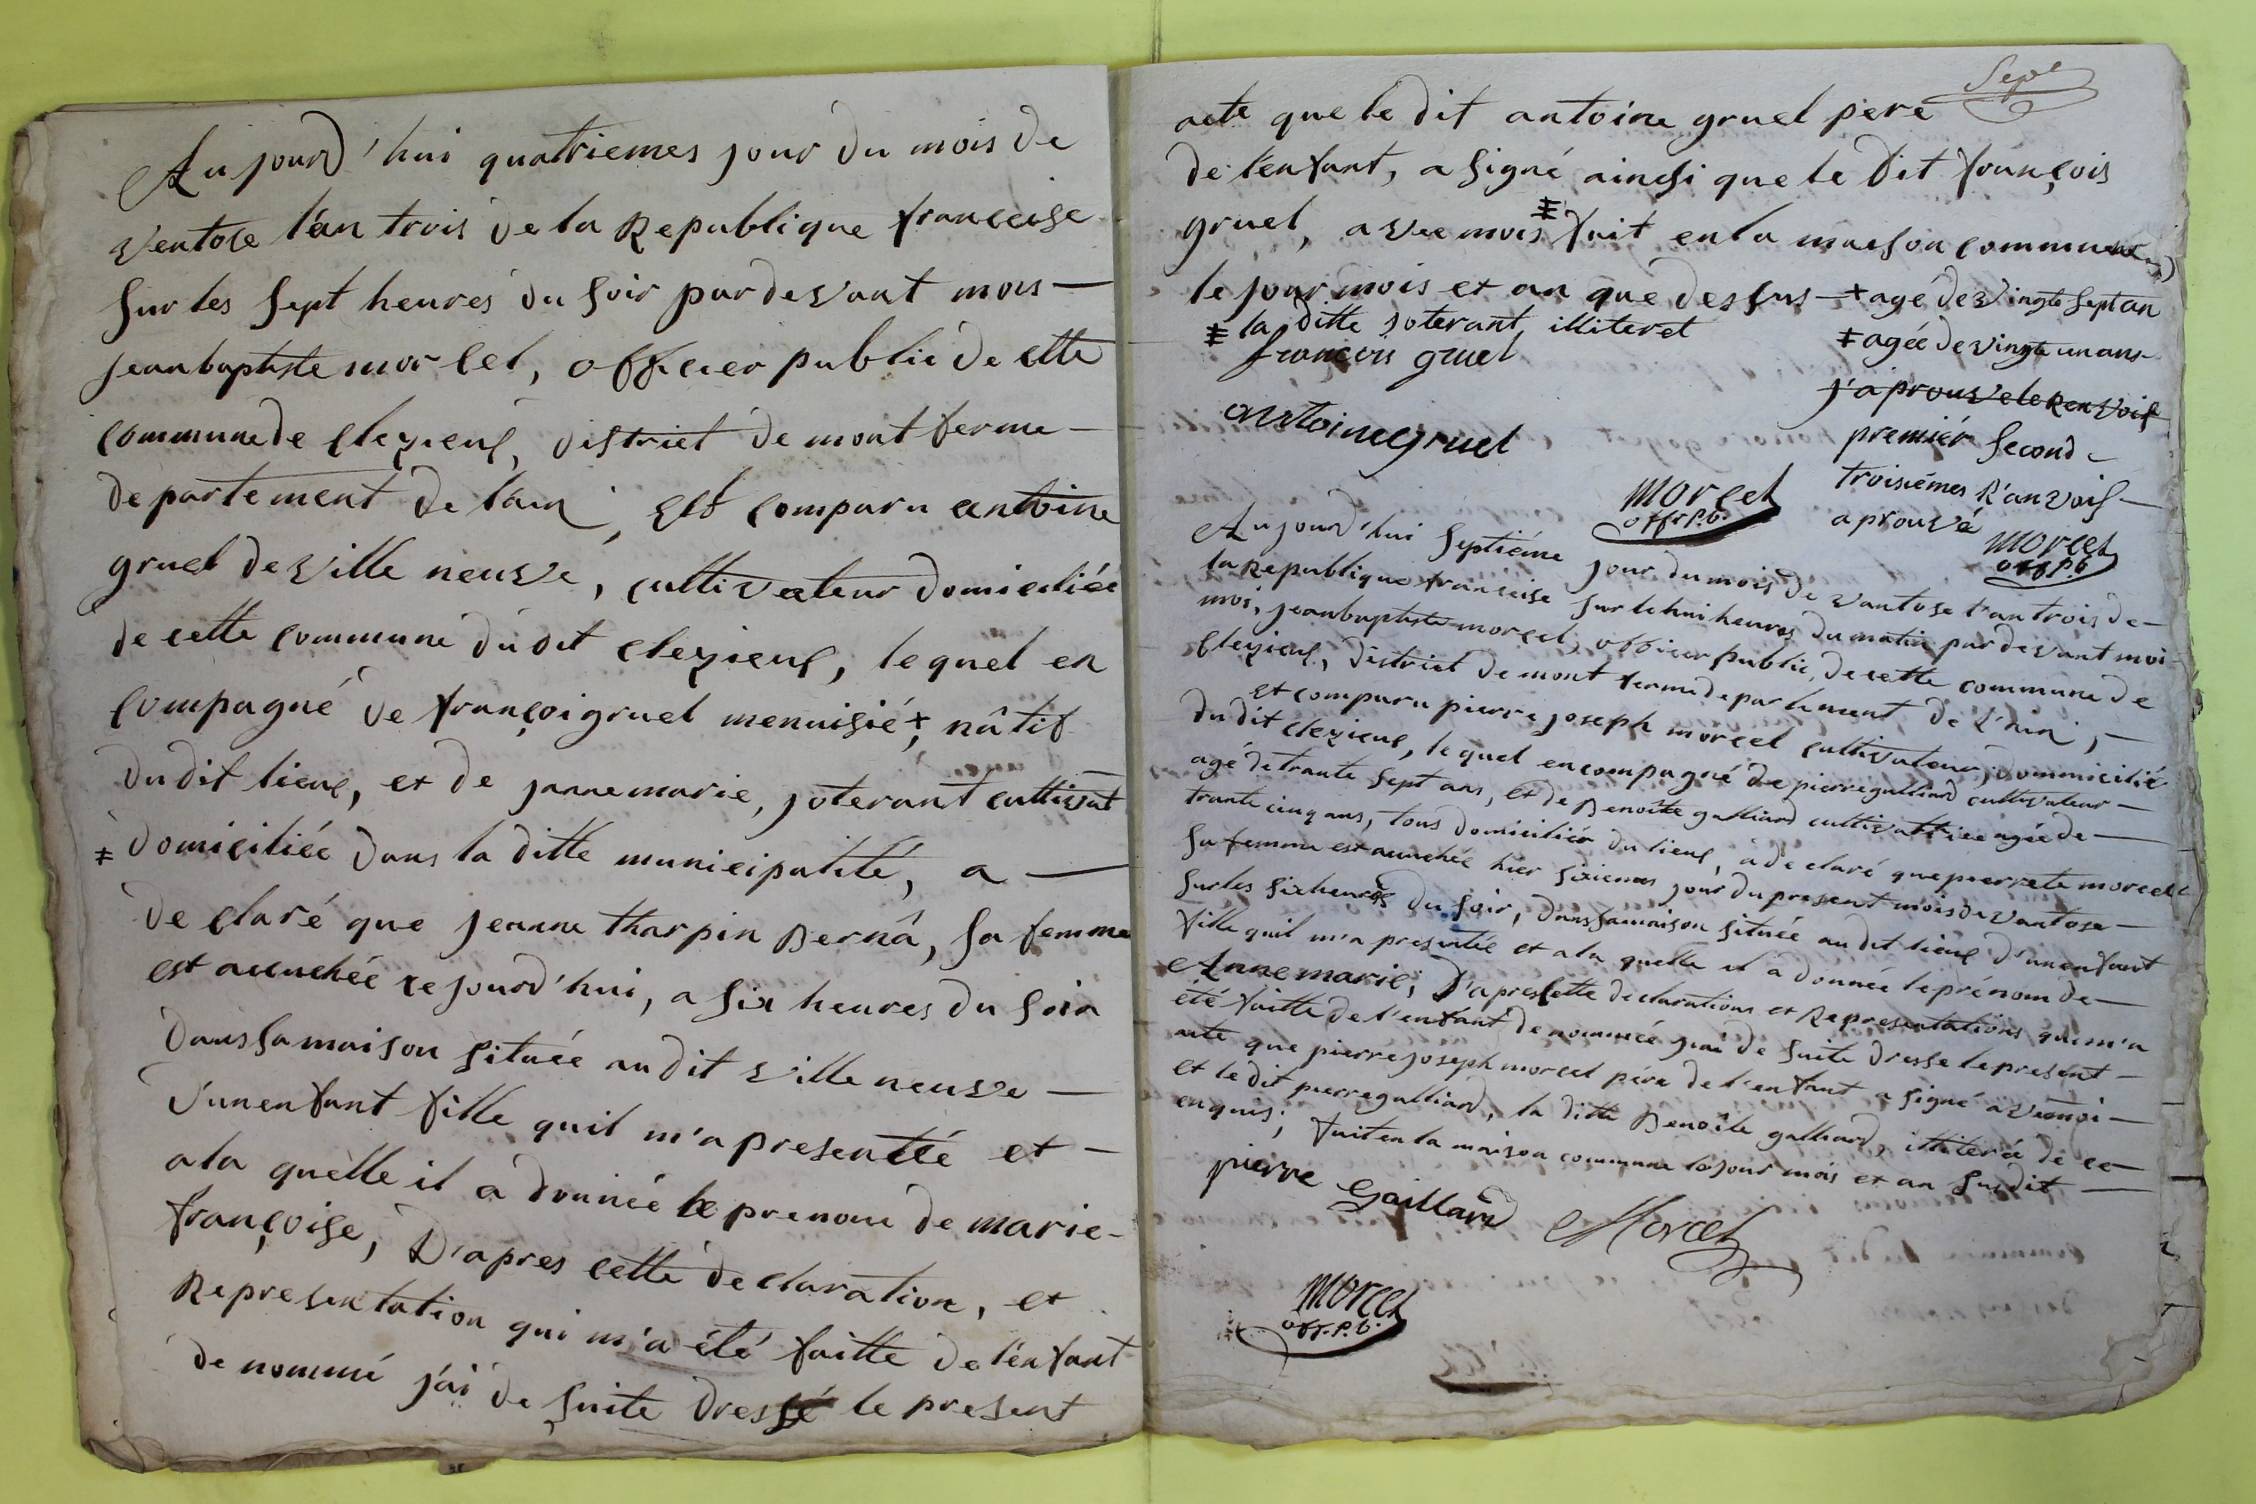 Aujourd'hui quatriemes jour du mois de
ventose l'an trois de la Republique franceise
sur les sept heures du soir pardevant mois —
jeanbaptiste morcel, officier public de cette
commune de cleyzieux, district de montferme —
departement de l'ain, est comparu antoine
gruel de ville neuve, cultivateur domiciliée
de cette commune du dit cleyzieux, lequel en
compagné de françoi gruel menuisié +, nâtif
du dit lieux, et de jannemarie, joterant cultivat
‡ domiciliée dans la ditte municipalité, a —
declaré que jeanne tharpin Bernâ, sa femme
est accuchée ce jourd'hui, a six heures du soir
dans sa maison située audit ville neuve —
d'un enfant fille quil m'a presenttée et —
a la quelle il a donnée le prenom de marie-
françoise, D'apres cette declaration, et
Representation qui m'a été faitte de l'enfant
denommé j'ai de suite dressé le present
Sept
acte que le dit antoine gruel pere
de l'enfant, a signé aindsi que le dit françois
gruel, avec mois ‡ fait en la maison commune
le jour mois et an que dessus — + agé de vingte sept an
‡ la ditte joterant illiteret
‡ agée de vingte un ans
françois gruel
j'aprouve le Renvois
antoine gruel
premiér second
troisiémes R'anvois —
aprouvé
morcel
off. P.b.
morcel
off P.b
Aujourd'hui septiéme jour du mois de vantose l'an trois de —
la Republique franceise sur le hui heures du matin pardevant moi
moi, jeanbaptiste morcel, officier public, de cette commune de
cleyzieux, district de montferme departement de l'ain, —
et comparu pierre joseph morcel cultivateur, dommicilié
du dit cleyzieux, le quel encompagné de pierre galliard cultivateur —
agé de trante sept ans, et de Benoite galliard cultivattrice agée de —
trante cinq ans, tous domiciliés du lieux, à declaré que pierrete morcel
sa femme est accuchée hier sixiemes jour du present mois de vantose —
sur les six heures du soir, dans sa maison située au dit lieux d'un enfant
fille quil m'a presentée et a la quelle il a donnée le prénom de —
Anne marie; D'apres cette declarations et Representations qui m'a
été faitte de l'enfant denommée jai de suite dresse le present —
acte que pierre joseph morcel pére de l'enfant a signé avec moi —
et le dit pierre galliard, la ditte Benoîte galliard, illiterée de ce —
enquis; fait en la maison commune le jour mois et an susdit —
pierre Gaillard
Morcel
morcel
off. P.b.